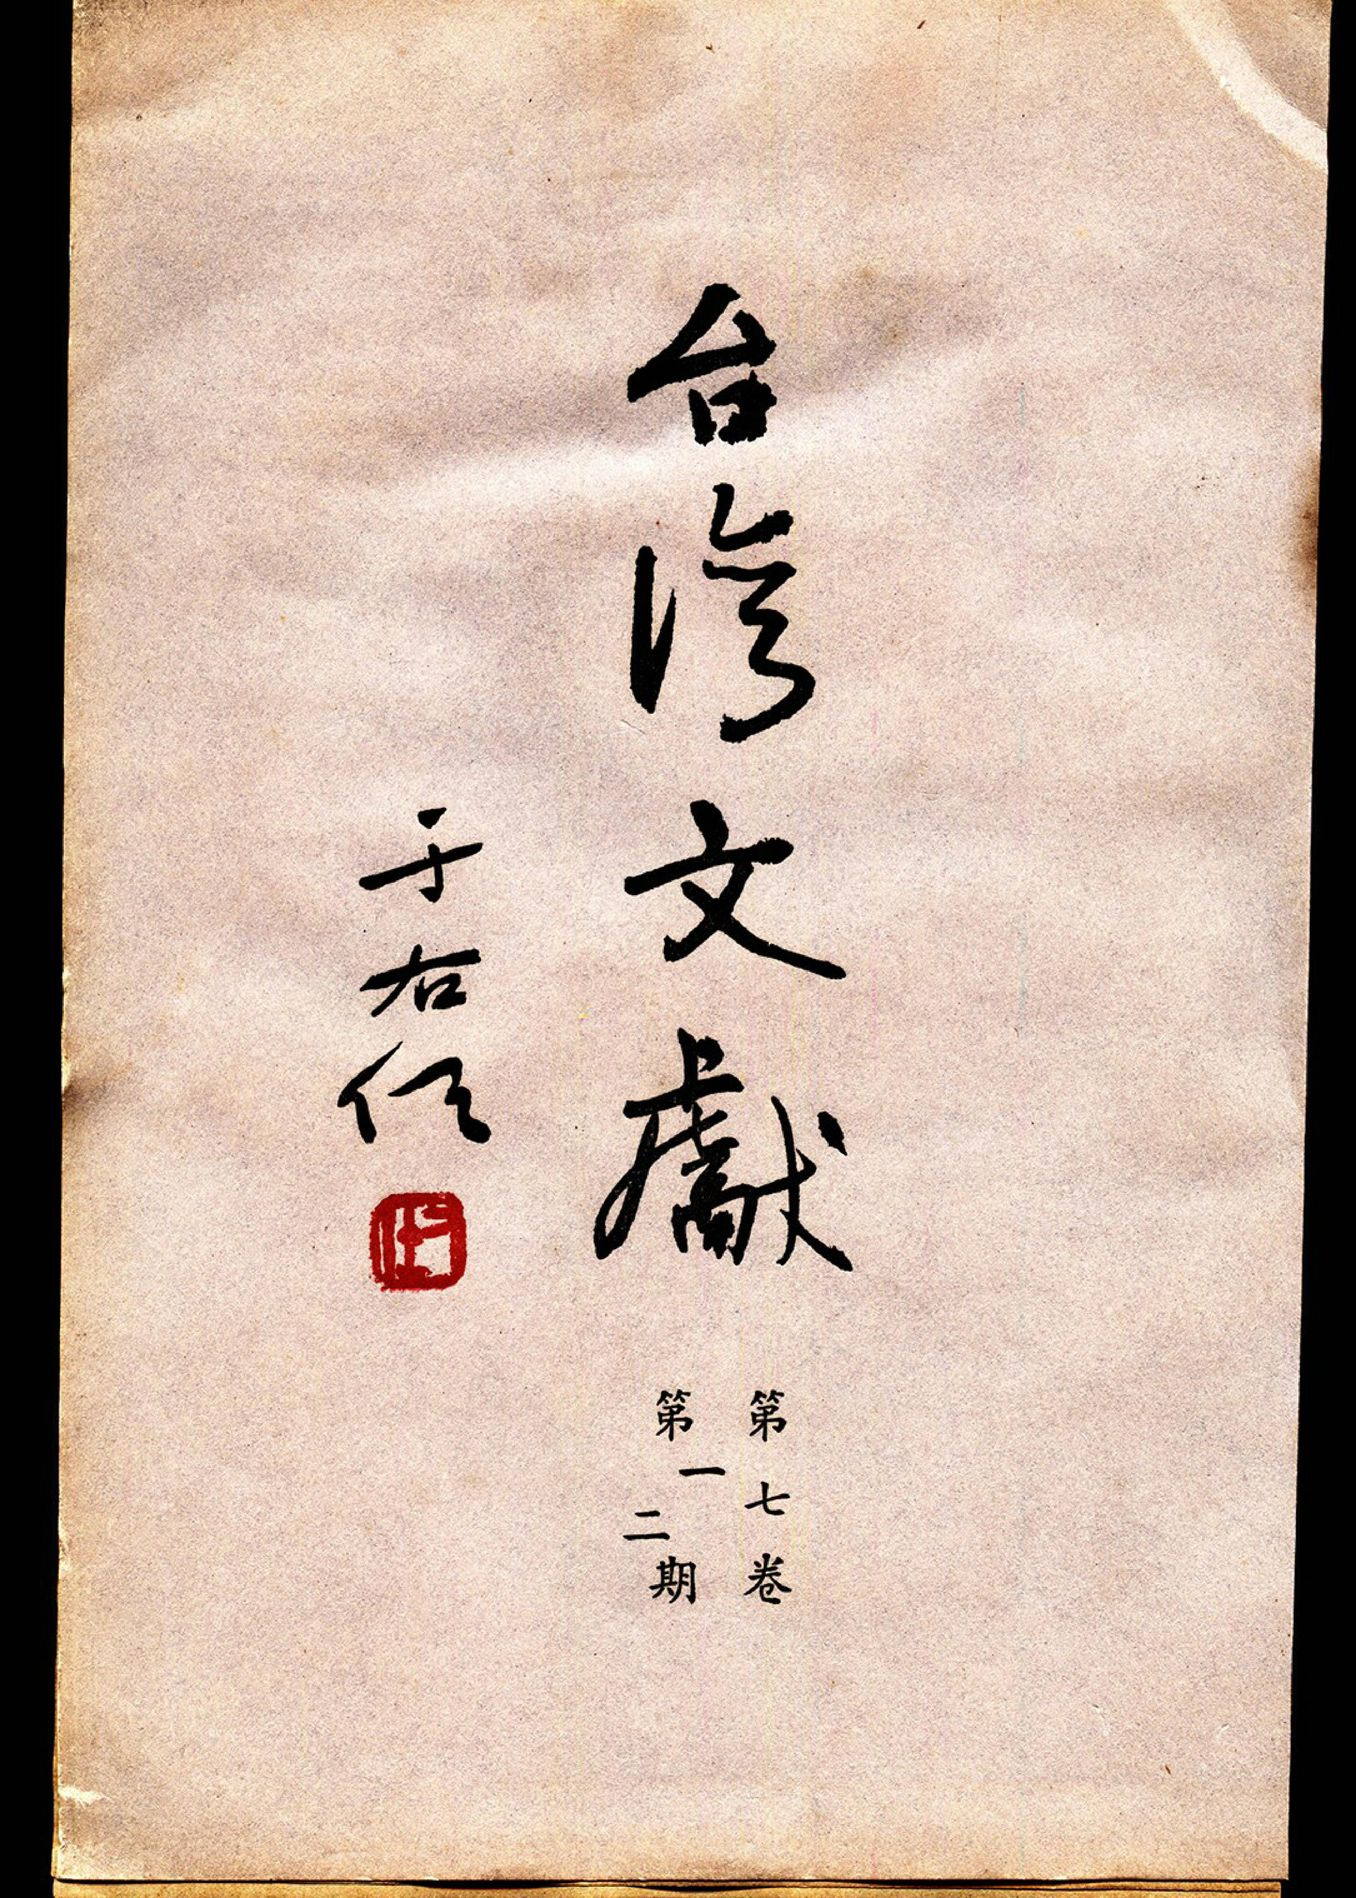 台灣文獻
第七卷
第一二期
于右任